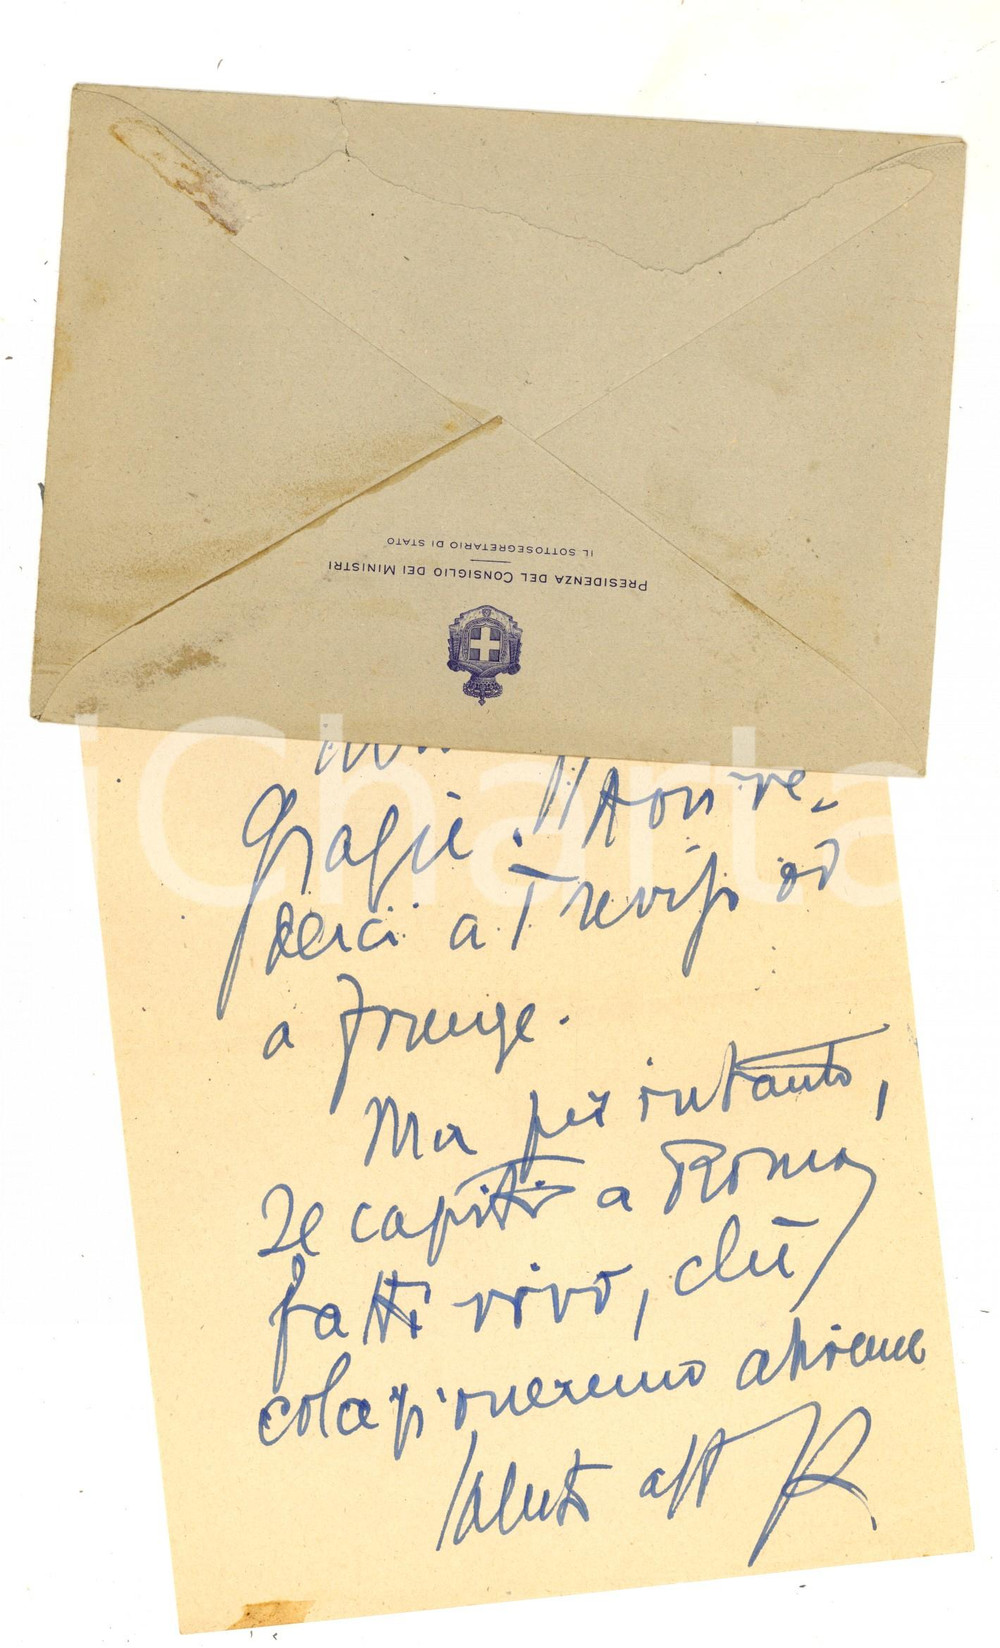 PRESIDENZA DEL CONSIGLIO DEI MINISTRI
IL SOTTOSEGRETARIO DI STATO
Grazie. Arrive-
derci a Treviso od
a Firenze.
Ma per intanto,
se capiti a Roma
fatti vivo, chè
colazioneremo assieme
Saluti aff
iCharta